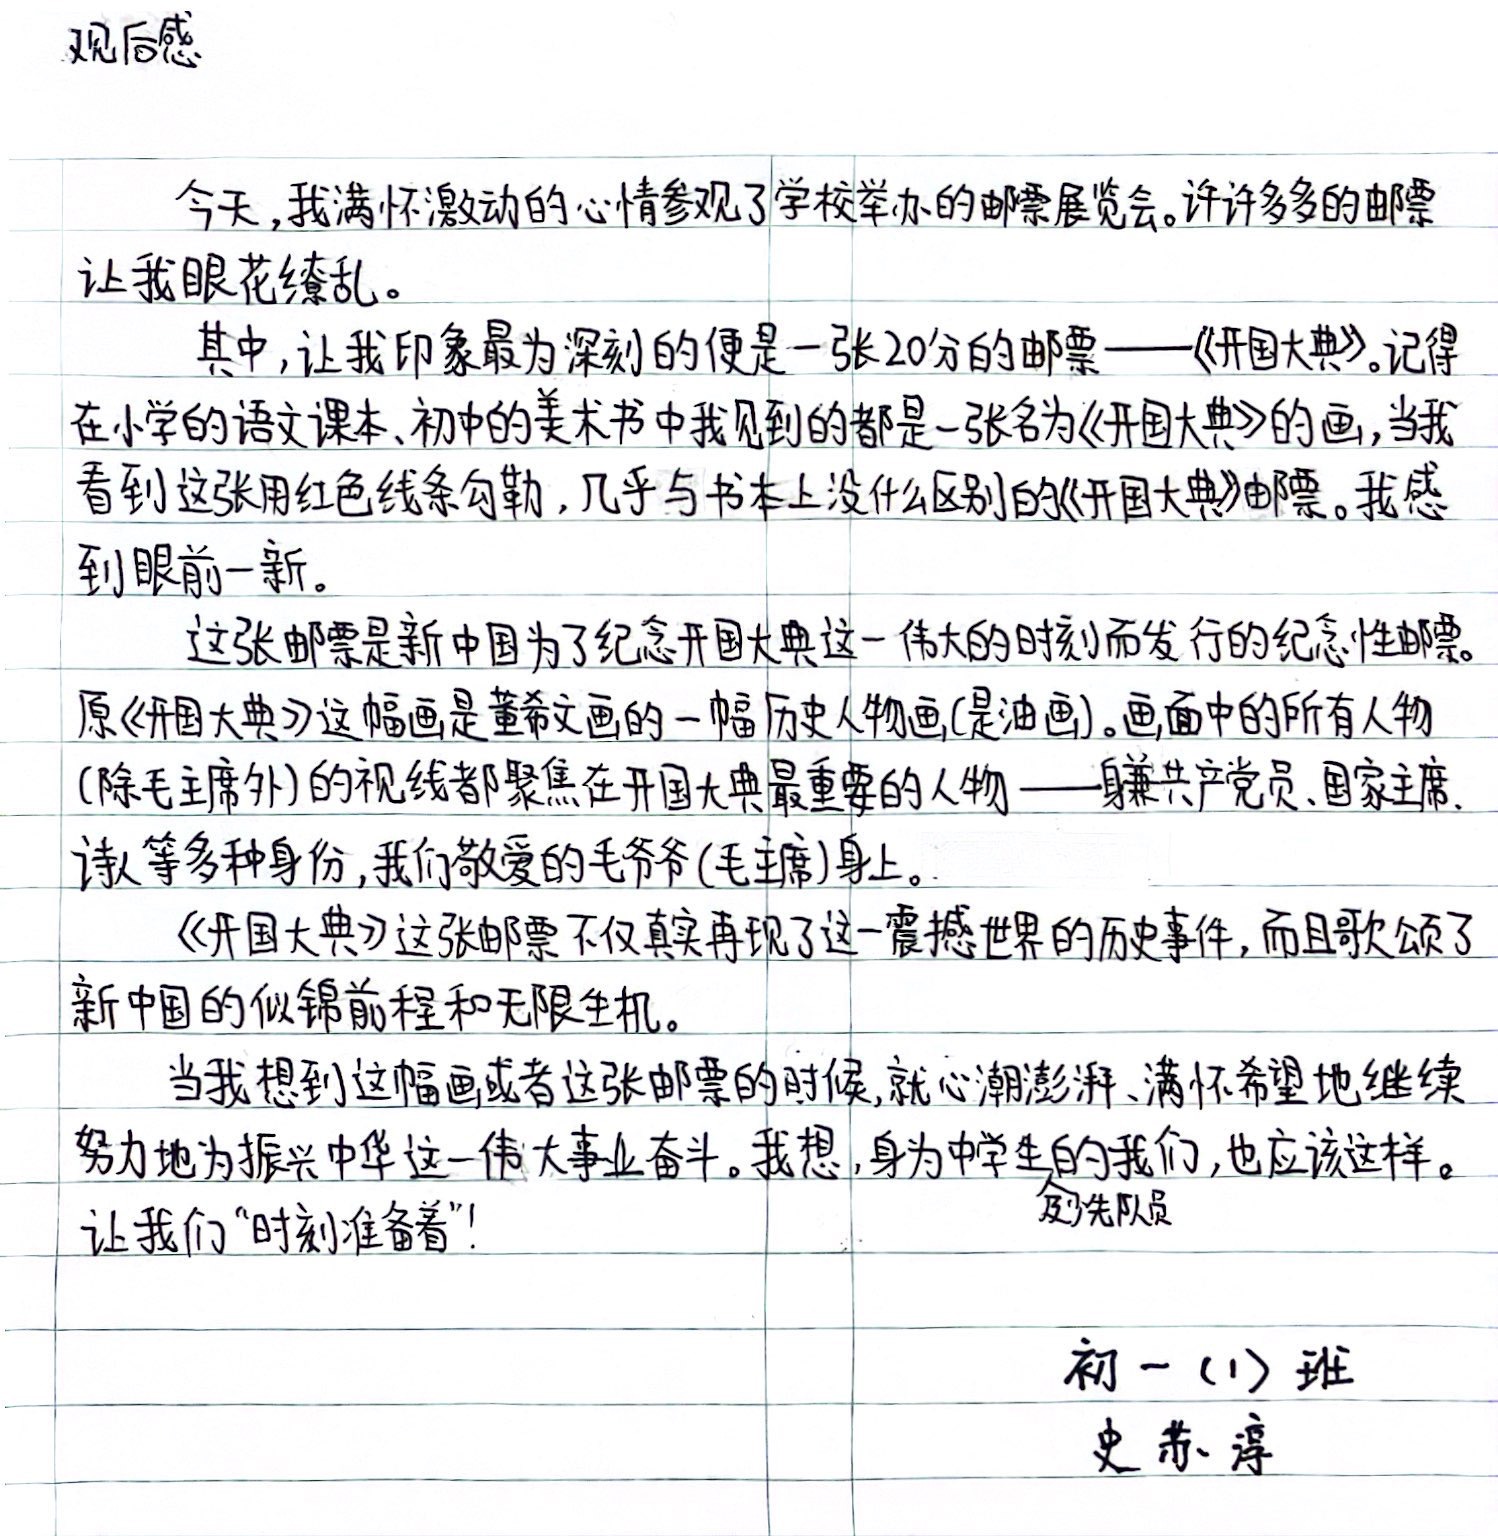 观后感
今天,我满怀激动的心情参观了学校举办的邮票展览会。许许多多的邮票
让我眼花缭乱。
其中,让我印象最为深刻的便是一张20分的邮票——《开国大典》。记得
在小学的语文课本、初中的美术书中我见到的都是一张名为《开国大典》的画,当我
看到这张用红色线条勾勒,几乎与书本上没什么区别的《开国大典》邮票。我感
到眼前一新。
这张邮票是新中国为了纪念开国大典这一伟大的时刻而发行的纪念性邮票。
原《开国大典》这幅画是董希文画的一幅历史人物画(是油画)。画面中的所有人物
(除毛主席外)的视线都聚焦在开国大典最重要的人物——身兼共产党员、国家主席、
诗人等多种身份,我们敬爱的毛爷爷(毛主席)身上。
《开国大典》这张邮票不仅真实再现了这一震撼世界的历史事件,而且歌颂了
新中国的似锦前程和无限生机。
当我想到这幅画或者这张邮票的时候,就心潮澎湃、满怀希望地继续
努力地为振兴中华这一伟大事业奋斗。我想,身为中学生的我们,也应该这样。
及少先队员
让我们“时刻准备着”!
初一(1)班
史苏淳